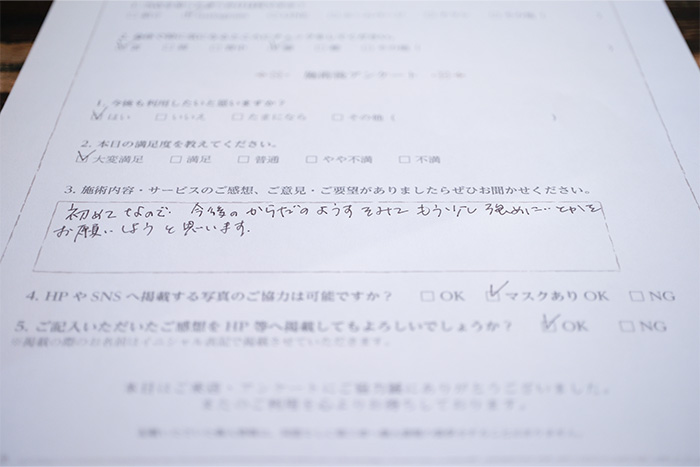 施術後アンケート
1. 今後も利用したいと思いますか？
はい □いいえ □たまになら □その他（ ）
2. 本日の満足度を教えてください。
大変満足 □満足 □普通 □やや不満 □不満
3. 施術内容・サービスのご感想、ご意見・ご要望がありましたらぜひお聞かせください。
初めてなので 今後のからだのようすをみて もう少し強めに…とかを
お願いしようと思います.
4. HPやSNSへ掲載する写真のご協力は可能ですか？ □OK ☑マスクありOK □NG
5. ご記入いただいたご感想をHP等へ掲載してもよろしいでしょうか？ ☑OK □NG
※掲載の際のお名前はイニシャル表記で掲載させていただきます。
本日はご来店・アンケートにご協力誠にありがとうございました。
またのご利用を心よりお待ちしております。